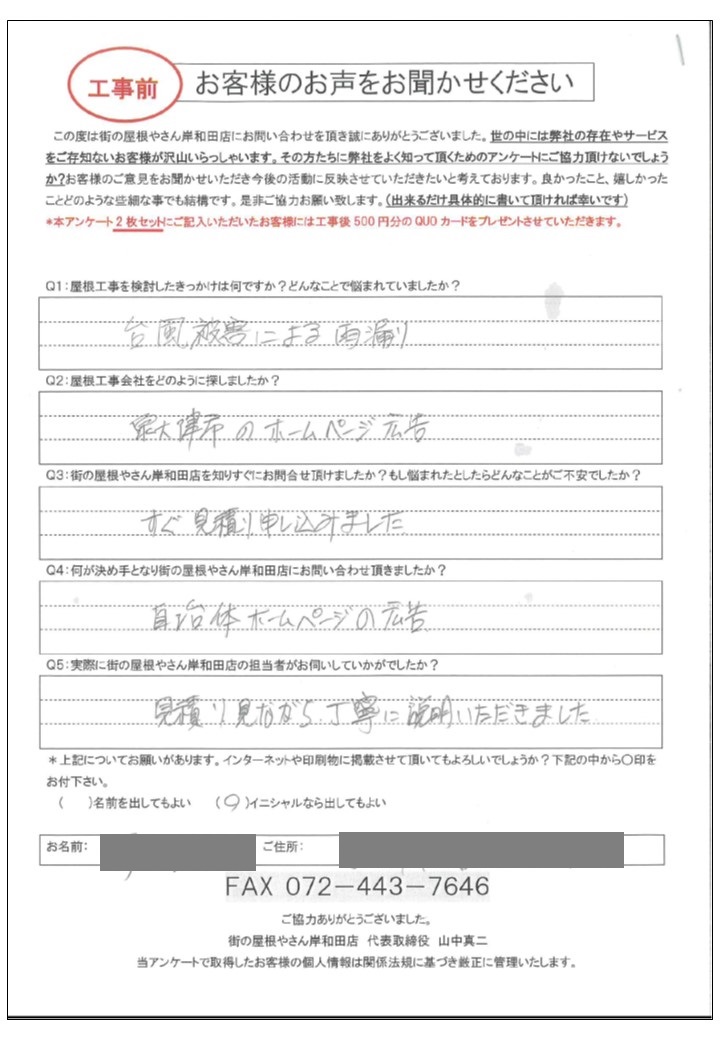 工事前
お客様のお声をお聞かせください
この度は街の屋根やさん岸和田店にお問い合わせを頂き誠にありがとうございました。世の中には弊社の存在やサービス
をご存知ないお客様が沢山いらっしゃいます。その方たちに弊社をよく知って頂くためのアンケートにご協力頂けないでしょう
か?お客様のご意見をお聞かせいただき今後の活動に反映させていただきたいと考えております。良かったこと、嬉しかった
ことどのような些細な事でも結構です。是非ご協力お願い致します。(出来るだけ具体的に書いて頂ければ幸いです)
*本アンケート2枚セットにご記入いただいたお客様には工事後500円分のQUOカードをプレゼントさせていただきます。
Q1:屋根工事を検討したきっかけは何ですか?どんなことで悩まれていましたか?
台風被害による雨漏り
Q2:屋根工事会社をどのように探しましたか?
泉大津市のホームページ広告
Q3:街の屋根やさん岸和田店を知りすぐにお問合せ頂けましたか?もし悩まれたとしたらどんなことがご不安でしたか?
すぐ見積り申し込みました
Q4:何が決め手となり街の屋根やさん岸和田店にお問い合わせ頂きましたか?
自治体ホームページの広告
Q5:実際に街の屋根やさん岸和田店の担当者がお伺いしていかがでしたか?
見積り見ながら、丁寧に説明いただきました
*上記についてお願いがあります。インターネットや印刷物に掲載させて頂いてもよろしいでしょうか?下記の中から○印を
お付下さい。
( )名前を出してもよい (○)イニシャルなら出してもよい
お名前: ご住所:
FAX 072-443-7646
ご協力ありがとうございました。
街の屋根やさん岸和田店 代表取締役 山中真二
当アンケートで取得したお客様の個人情報は関係法規に基づき厳正に管理いたします。